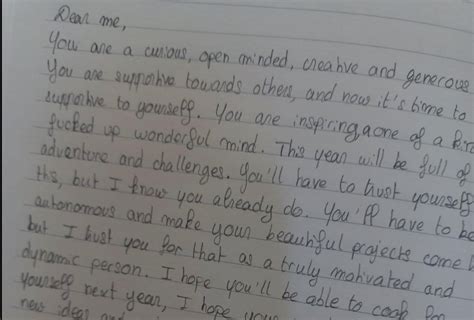 Dear me,
You are a curious, open minded, creative and generous
You are supportive towards others, and now it's time to
supportive to yourself. You are inspiring, a one of a kin
fucked up wonderful mind. This year will be full of
adventure and challenges. You'll have to trust yourself
ths, but I know you already do. You'll have to be
autonomous and make your beautiful projects come
but I trust you for that as a truly motivated and
dynamic person. I hope you'll be able to for
yourself next year, I hope your
new ideas and